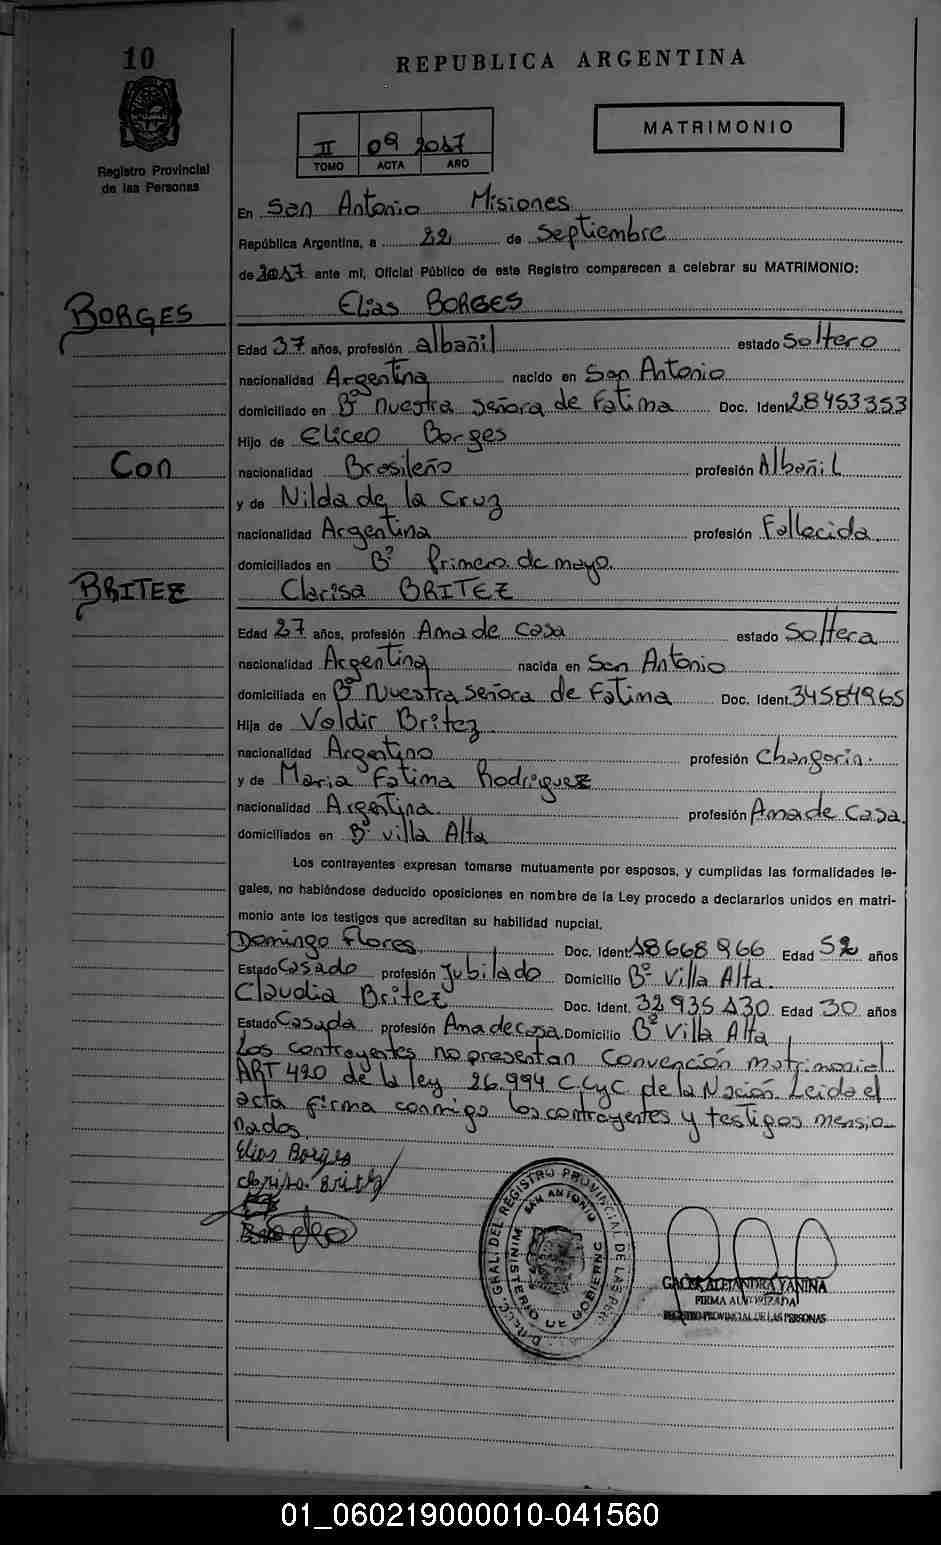 10
REPUBLICA ARGENTINA
Registro Provincial
de las Personas
II 09 2017
TOMO ACTA AÑO
MATRIMONIO
En San Antonio Misiones
República Argentina, a 22 de Septiembre
de 2017 ante mí, Oficial Público de este Registro comparecen a celebrar su MATRIMONIO:
BORGES
Elias BORGES
Edad 37 años, profesión albañil estado Soltero
nacionalidad Argentina nacido en San Antonio
domiciliado en Bº Nuestra Señora de Fatima Doc. Ident. 28453353
Hijo de Eliceo Borges
Con
nacionalidad Brasileño profesión Albañil
y de Nilda de la Cruz
nacionalidad Argentina profesión Fallecida
domiciliados en Bº Primero de mayo.
BRITEZ
Clarisa BRITEZ
Edad 27 años, profesión Ama de casa estado Soltera
nacionalidad Argentina nacida en San Antonio
domiciliada en Bº Nuestra Señora de Fatima Doc. Ident. 34584965
Hija de Valdir Britez
nacionalidad Argentino profesión Changarin.
y de Maria Fatima Rodriguez
nacionalidad Argentina profesión Ama de Casa.
domiciliados en Bº villa Alta
Los contrayentes expresan tomarse mutuamente por esposos, y cumplidas las formalidades le-
gales, no habiéndose deducido oposiciones en nombre de la Ley procedo a declararlos unidos en matri-
monio ante los testigos que acreditan su habilidad nupcial.
Domingo Flores Doc. Ident. 18668966 Edad 52 años
Estado Casado profesión Jubilado Domicilio Bº Villa Alta.
Claudia Britez Doc. Ident. 32.935.130 Edad 30 años
Estado Casada profesión Ama de casa Domicilio Bº Villa Alta
Los contrayentes no presentan Convención matrimonial
ART 420 de la ley 26.994 C.C y C de la Nación. Leida el
acta firma conmigo los contrayentes y testigos mensio-
nados.
Elias Borges
Clarisa Britez
DIREC. GRAL. DEL REGISTRO PROVINCIAL DE LAS PER.
SAN ANTONIO
MINISTERIO DE GOBIERNO
ALEJANDRA YANINA
FIRMA AUTORIZADA
REGISTRO PROVINCIAL DE LAS PERSONAS
01_060219000010-041560